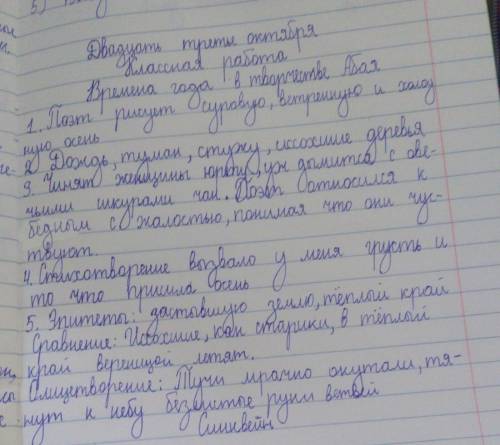 5)
Двадцать третье октября
Классная работа
Времена года в творчестве Абая
1. Поэт рисует суровую, ветренную и холод
ную осень
2. Дождь, туман, стужу, иссохшие деревья
3. Чинят женщины юрту, уж дымится с ове-
чьими шкурами чан. Поэт относился к
бедным с жалостью, понимая что они чус-
твуют.
4. Стихотворение вызвало у меня грусть и
то что пришла осень
5. Эпитеты: застывшую землю, тёплый край
Сравнение: Иссохшие, как старики, в тёплый
край вереницой летят.
Олицетворение: Тучи мрачно окутали, тя-
нут к небу безлистые руки ветвей
Синквейн